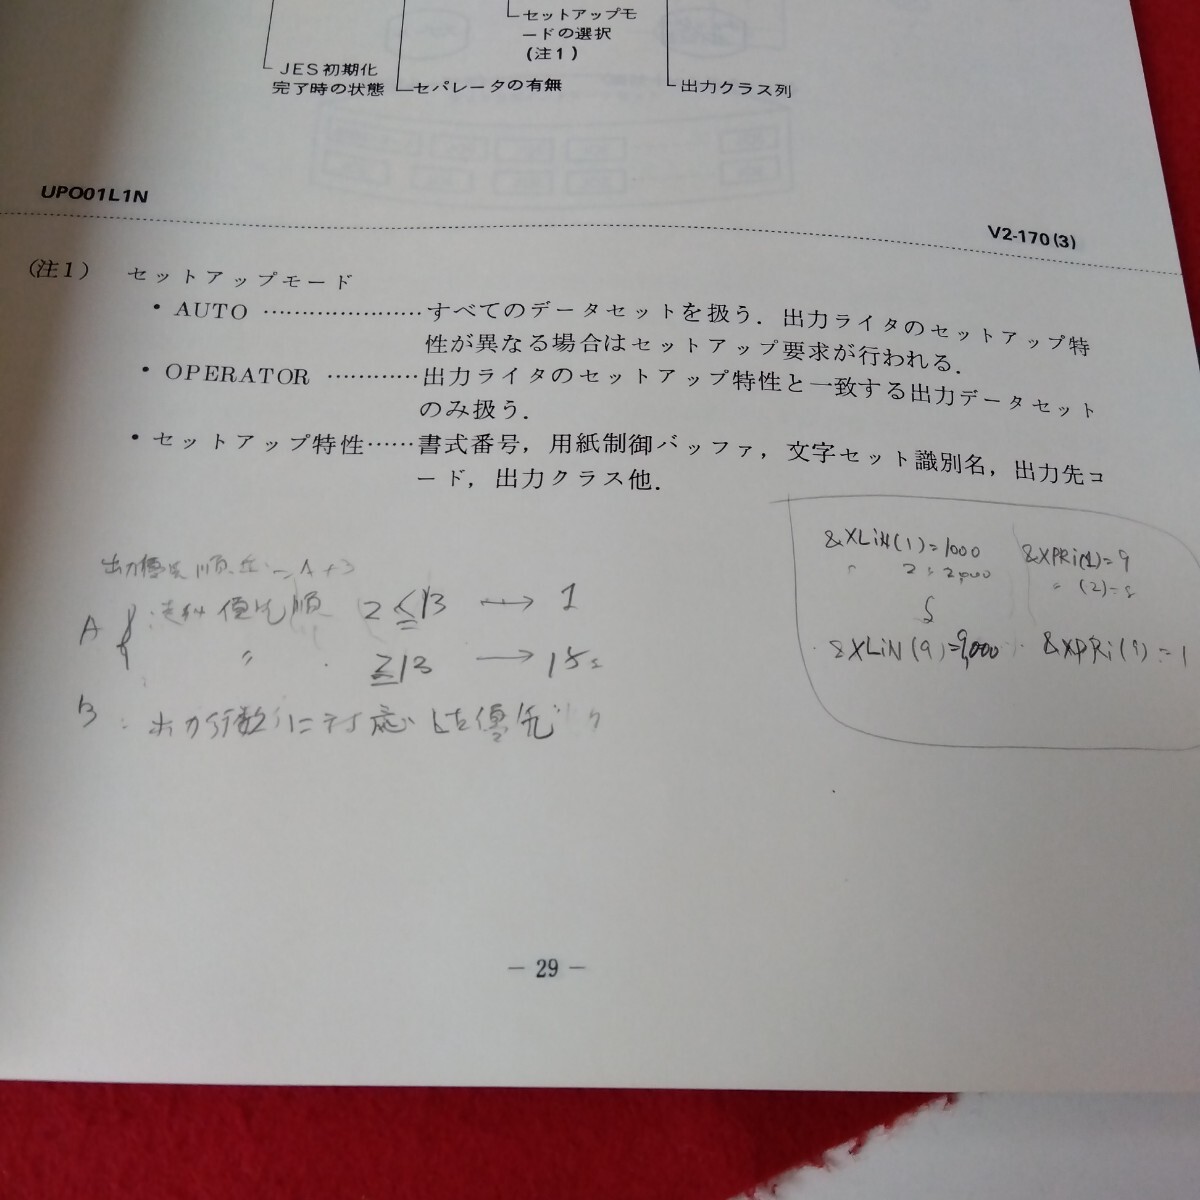 セットアップモ
ードの選択
(注1)
JES初期化
完了時の状態
セパレータの有無
出力クラス列
UPO01L1N
V2-170(3)
(注1) セットアップモード
・AUTO …………………すべてのデータセットを扱う．出力ライタのセットアップ特
性が異なる場合はセットアップ要求が行われる．
・OPERATOR …………出力ライタのセットアップ特性と一致する出力データセット
のみ扱う．
・セットアップ特性……書式番号，用紙制御バッファ，文字セット識別名，出力先コ
ード，出力クラス他．
&XLiN(1)=1000 &XPRi(1)=9
〃 2 = 2,000 〃 (2)=8
&XLiN(9)=9,000 &XPRi(9)=1
A 優先順 2≦13 → 1
〃 ≧13 → 15
B : 出力行数に対応した優先
－ 29 －